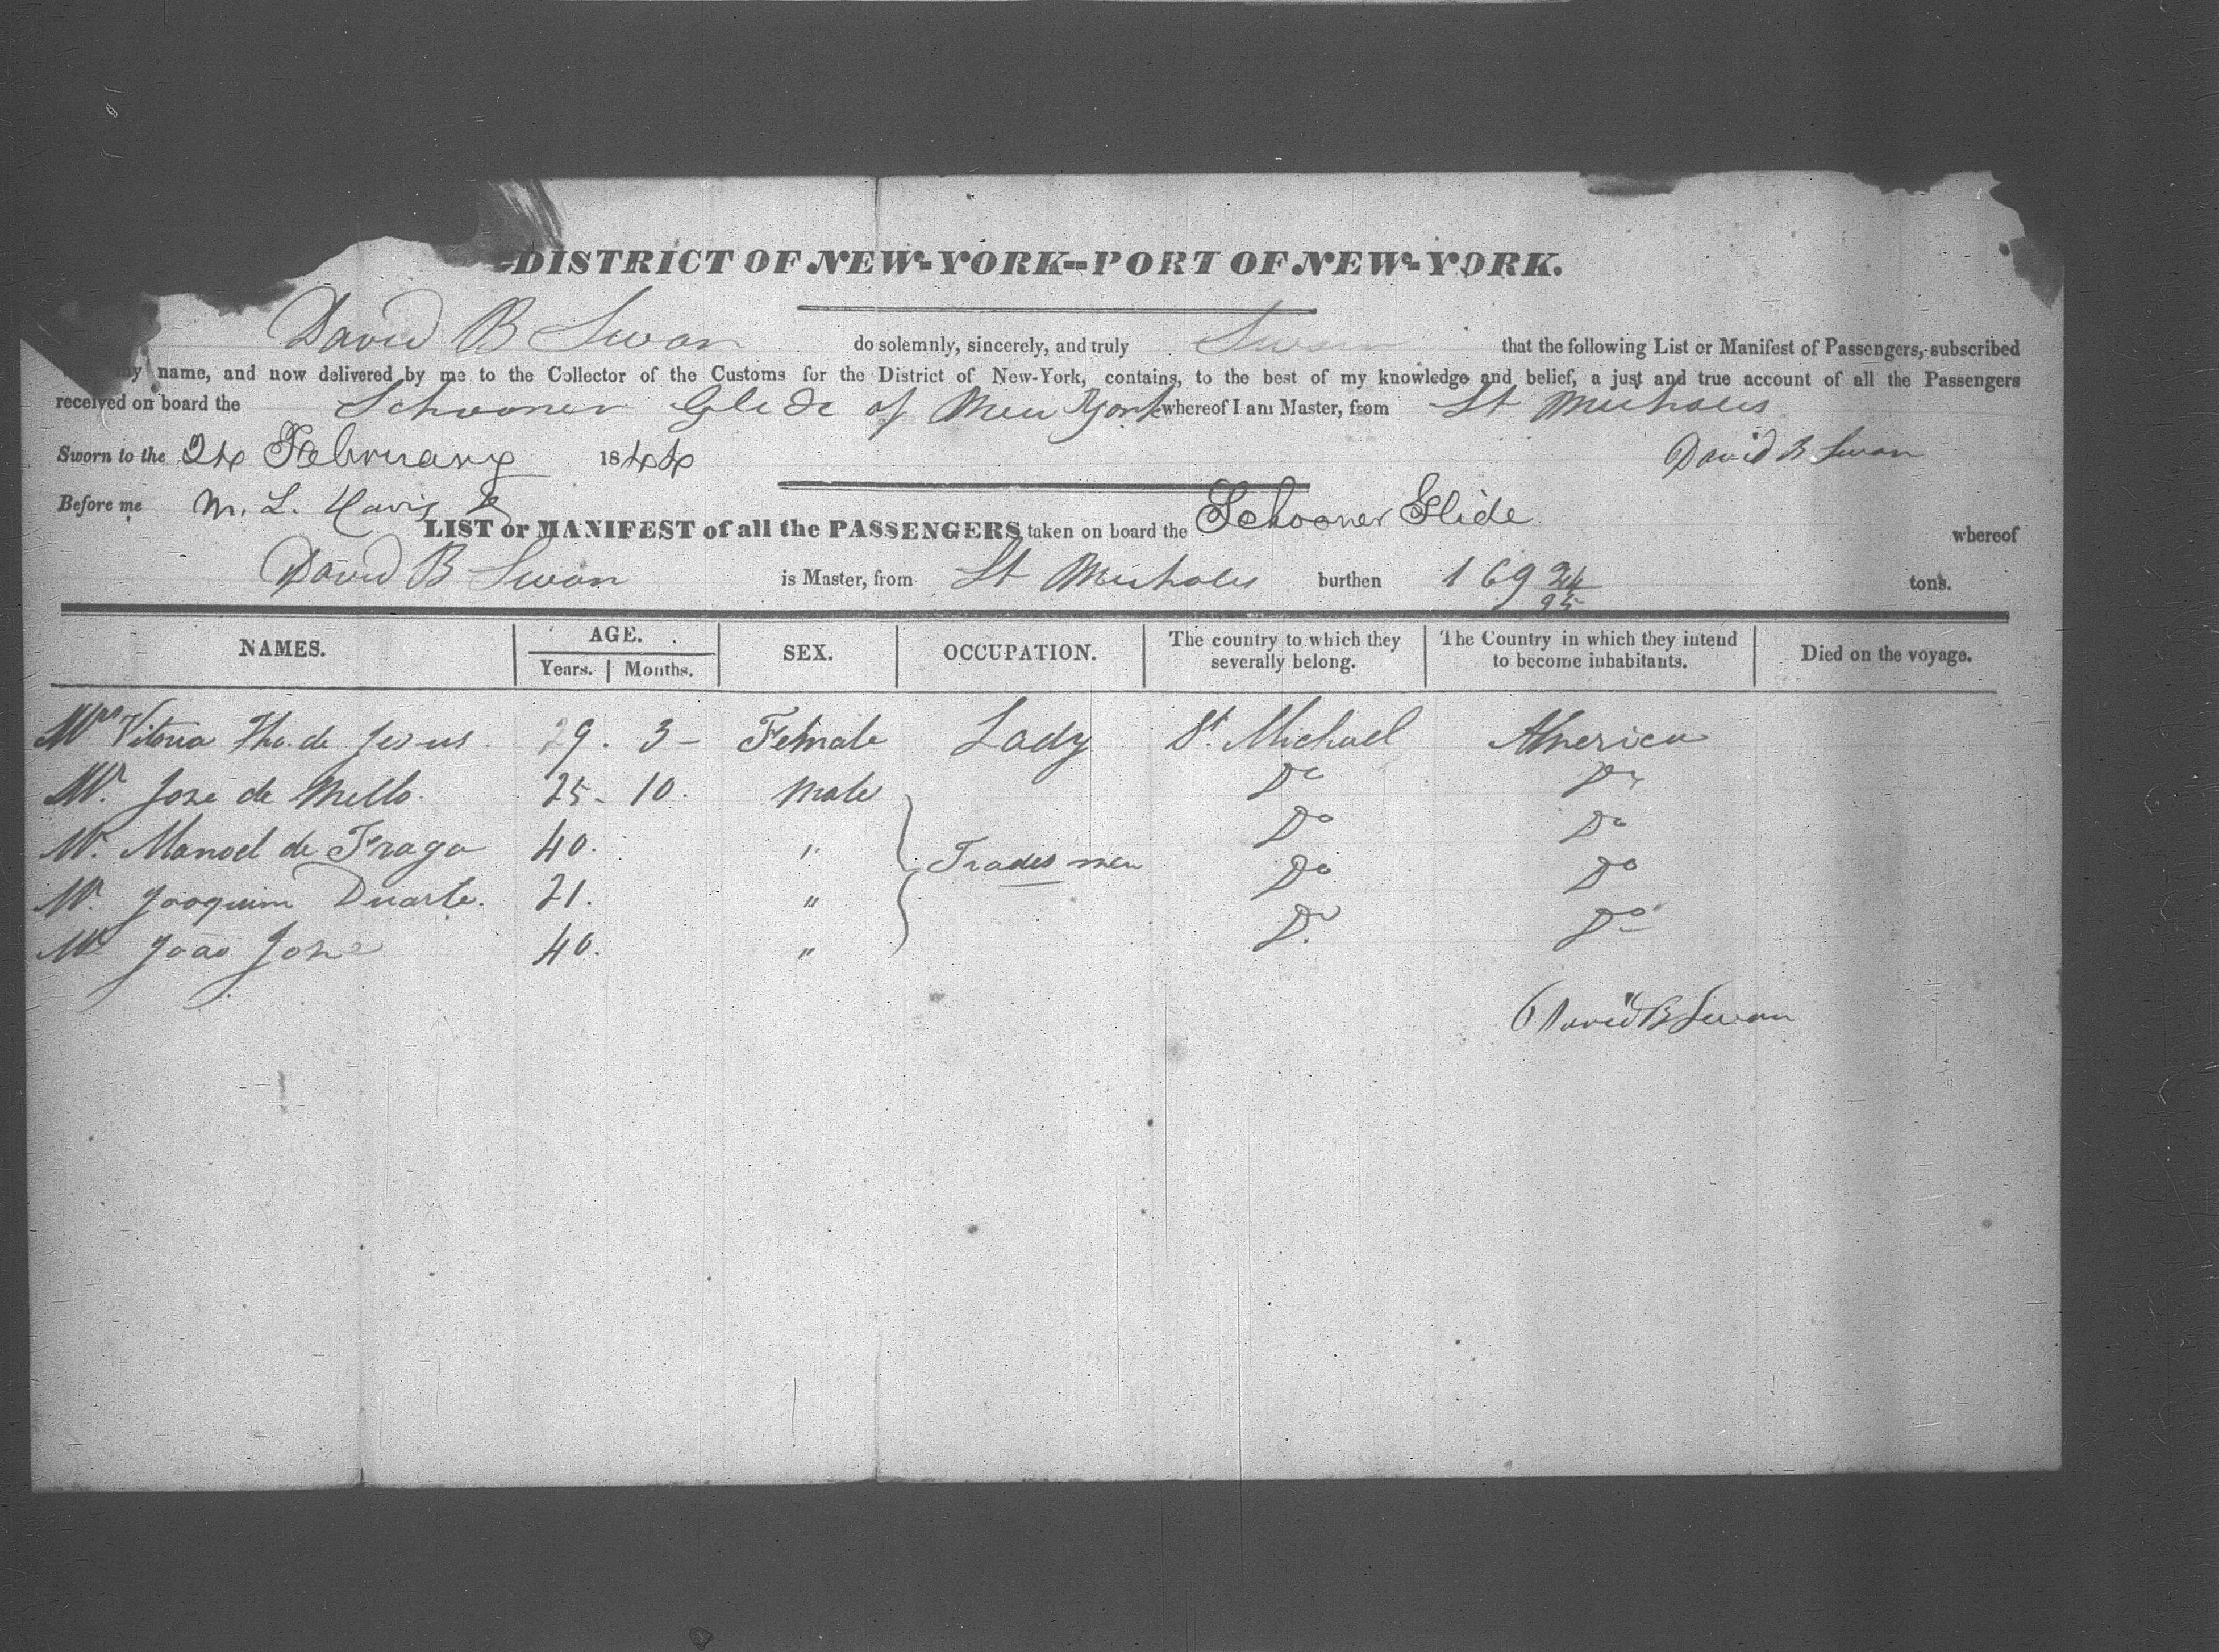 DISTRICT OF NEW-YORK--PORT OF NEW-YORK.
David B Swan do solemnly, sincerely, and truly Swear that the following List or Manifest of Passengers, subscribed
my name, and now delivered by me to the Collector of the Customs for the District of New-York, contains, to the best of my knowledge and belief, a just and true account of all the Passengers
received on board the Schooner Glide of New York whereof I am Master, from St Michaels
Sworn to the 24 February 1844 David B Swan
Before me M. L. Davis
LIST or MANIFEST of all the PASSENGERS taken on board the Schooner Glide whereof
David B Swan is Master, from St Michaels burthen 169 24/95 tons.
NAMES. AGE. Years. Months. SEX. OCCUPATION. The country to which they severally belong. The Country in which they intend to become inhabitants. Died on the voyage.
Mrs Vitoria Tha. de Jesus 29. 3- Female Lady St. Michael America
Mr. Jose de Mello. 25- 10. Male Do Do
Mr. Manoel de Fraga 40. " Do Do
Tradesmen
Mr. Joaquim Duarte. 21. " Do Do
Mr João Jose 40. " Do Do
David B Swan